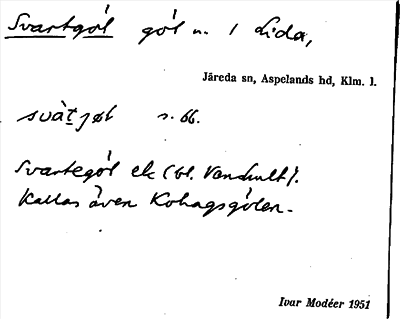 Svartgöl göl n. / Lida,
Järeda sn, Aspelands hd, Klm. l.
svàt̠jøl s. 66.
Svartegöl ek (bl. Vendhult).
Kallas även Kohagsgölen.
Ivar Modéer 1951